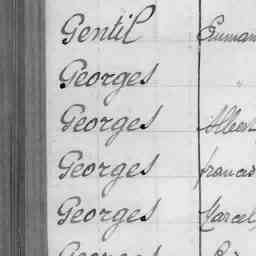 Gentil Emman
Georges "
Georges Albert
Georges Francis
Georges Marcel
Georges